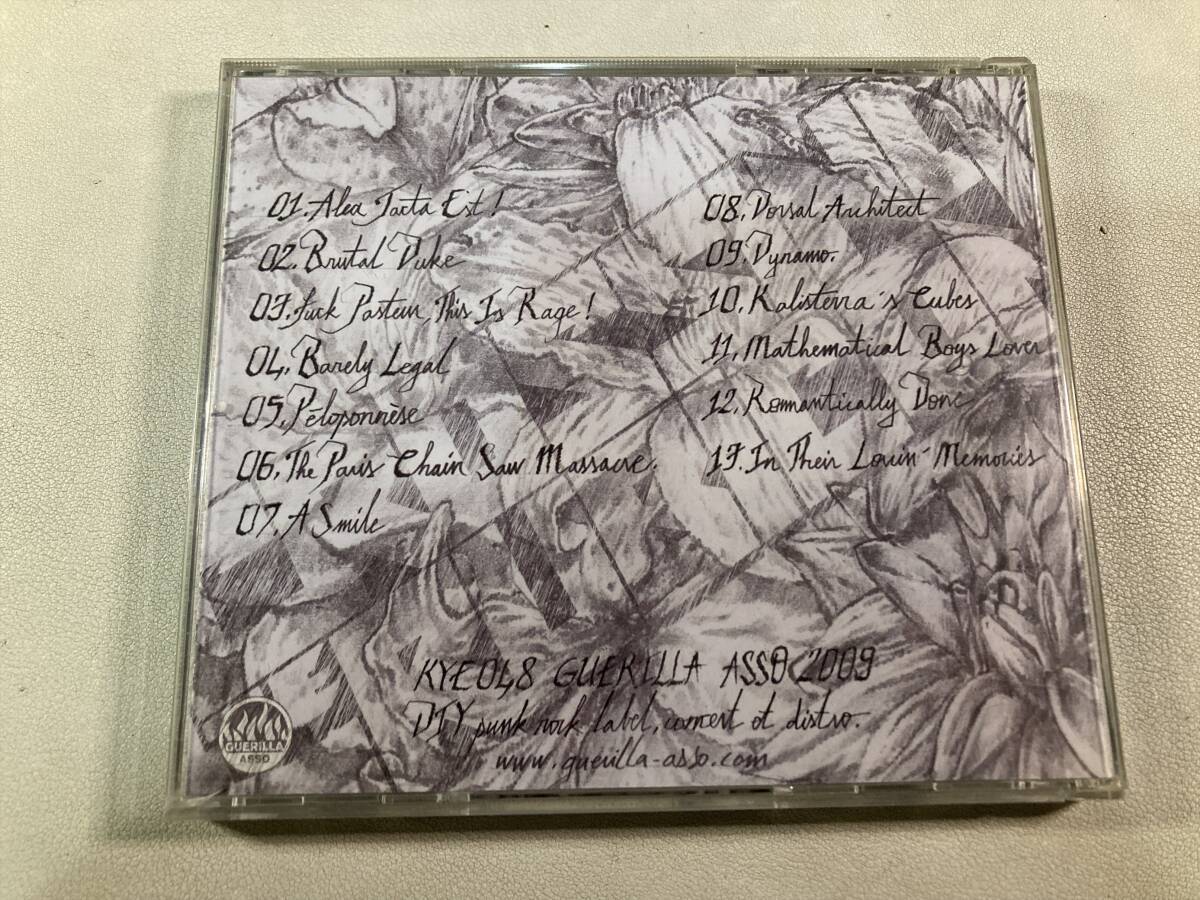 01. Alea Jacta Est !
02. Brutal Duke
03. Fuck Pasteur, This Is Rage !
04, Barely Legal
05, Péloponnèse
06, The Paris Chain Saw Massacre.
07. A Smile
08, Dorsal Architect
09. Dynamo.
10, Kalisterra's Cubes
11, Mathematical Boys Lover
12, Romantically Done
13. In Their Lovin' Memories
KYEO48 GUERILLA ASSO 2009
DIY punk rock label, concert et distro.
www.guerilla-asso.com
GUERILLA
ASSO